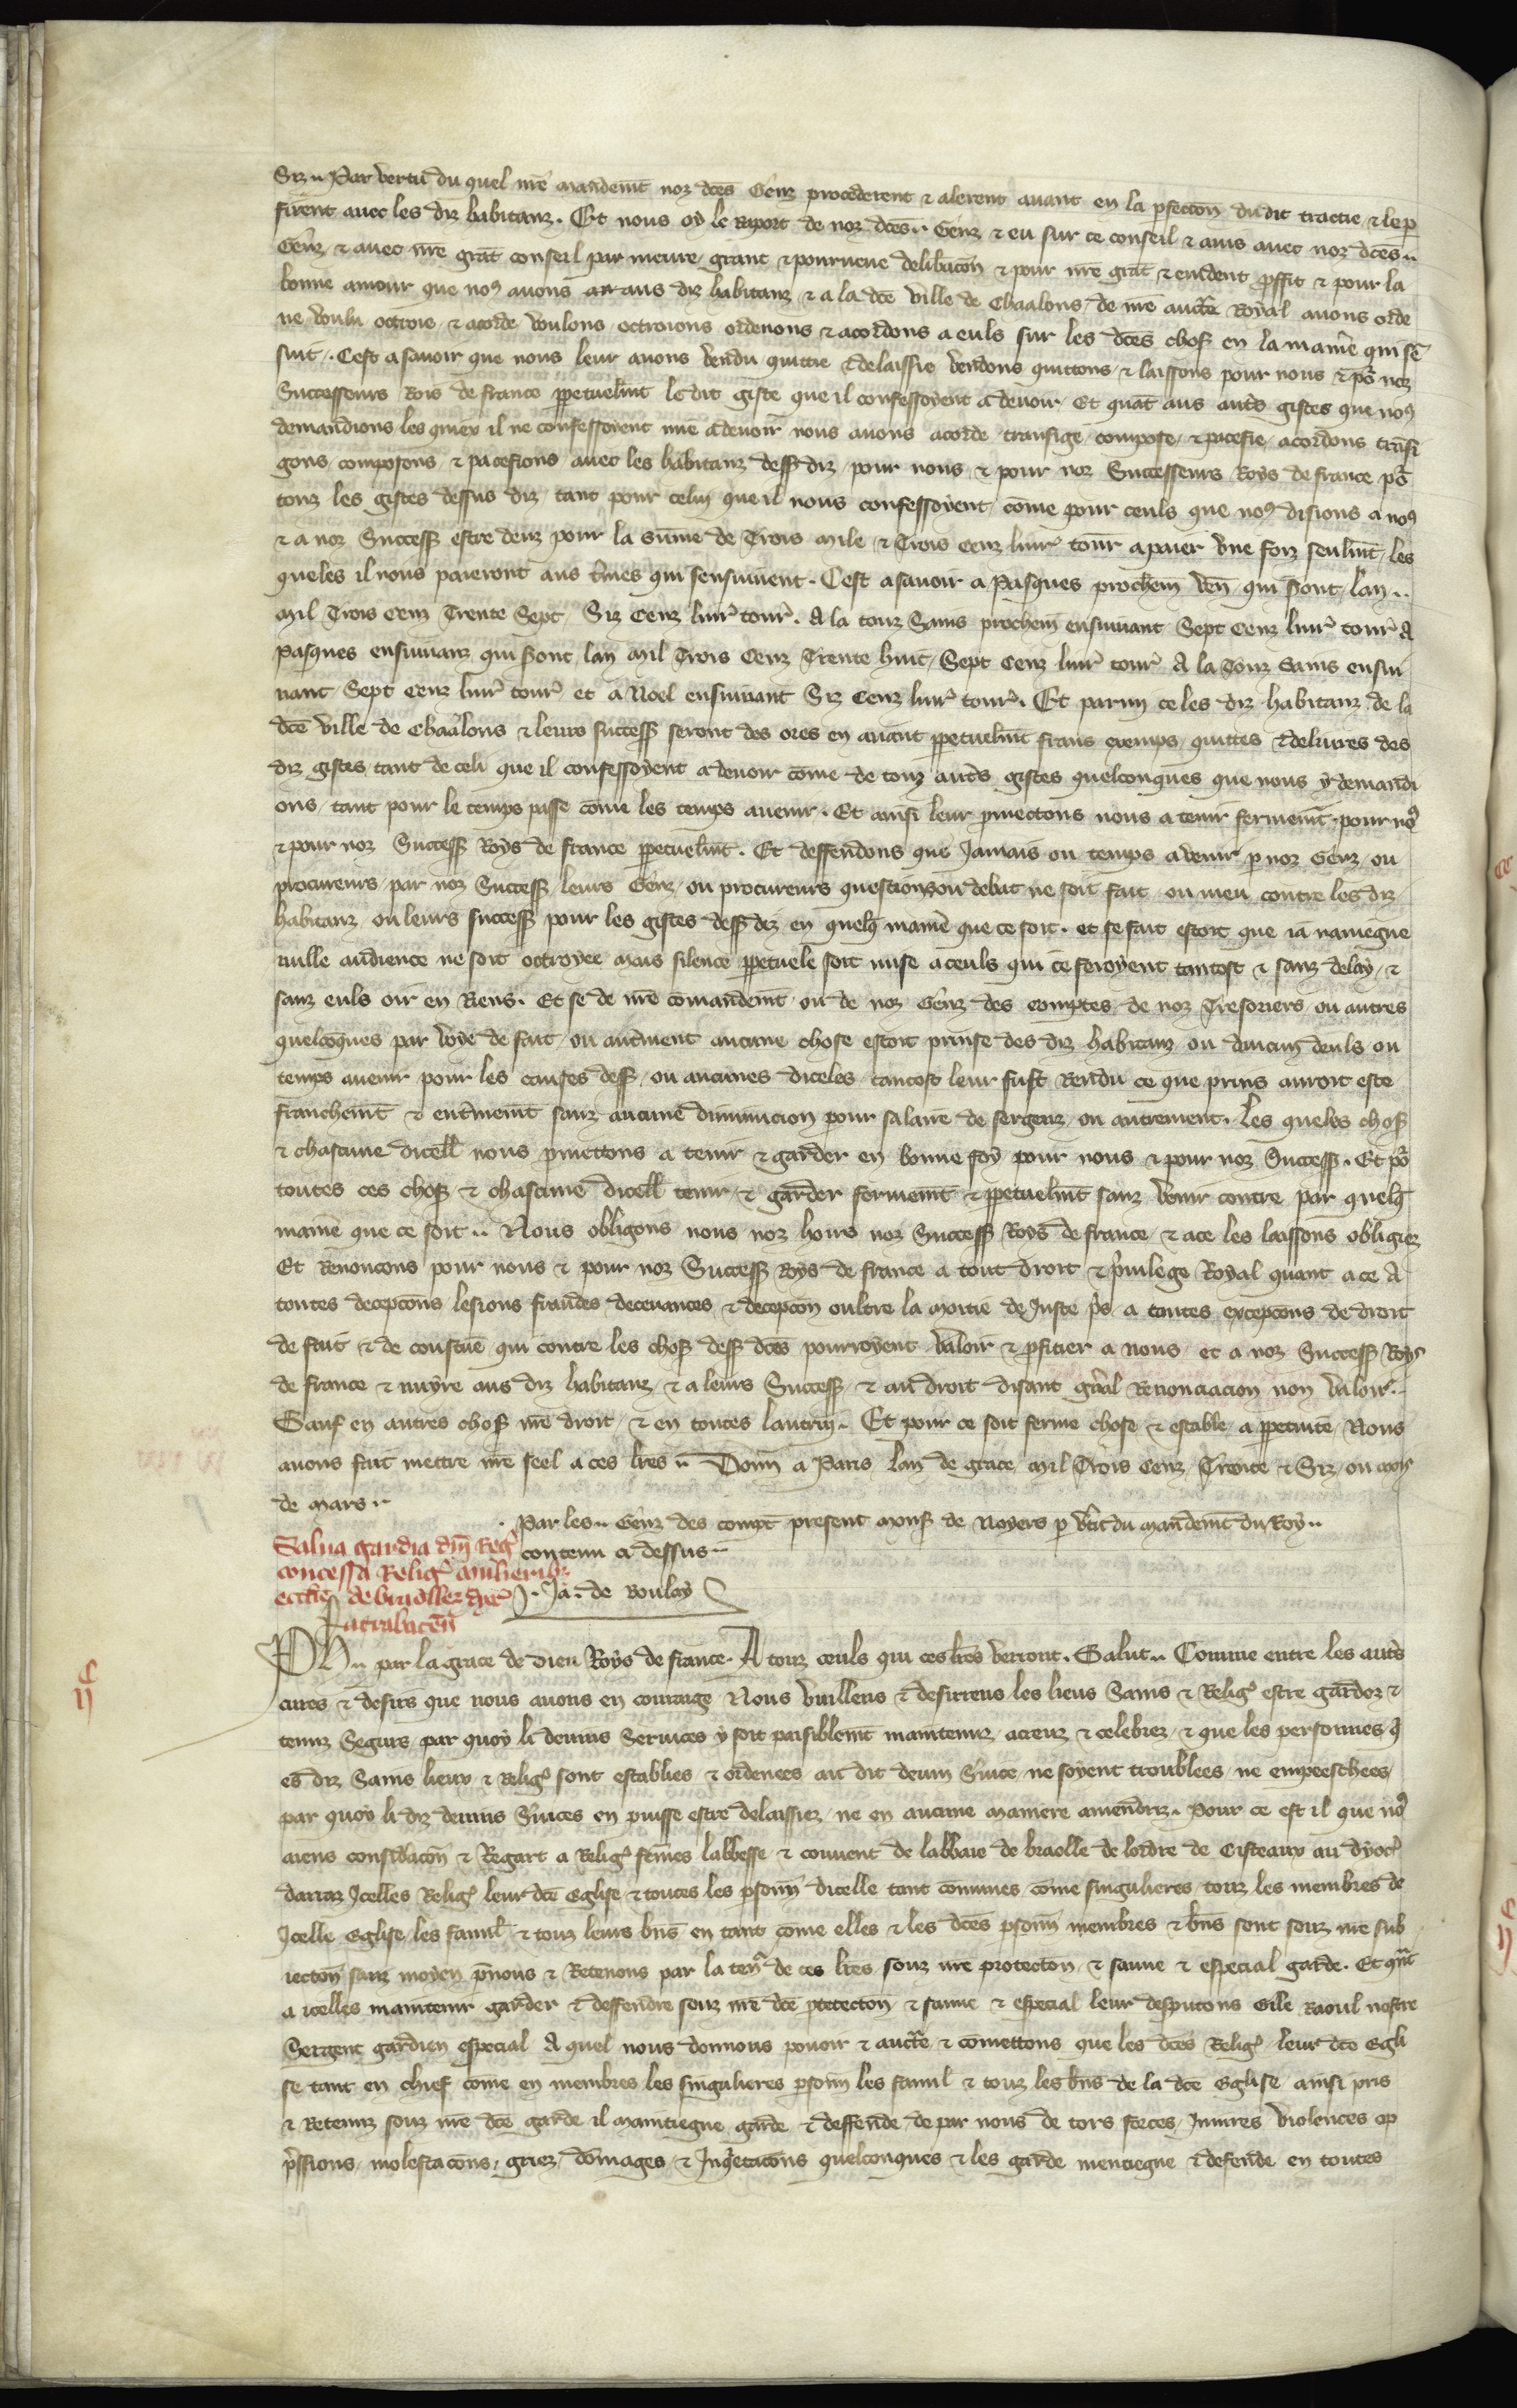 Siz .. Par vertu du quel nre mandemt noz dces Genz procederent & alerent avant en la pfeccon dudit tractie & le p
firent avec les diz habitanz . Et nous oy le raport de noz dces .. Genz & eu sur ce conseil & avis avec noz dces ..
Genz & avec nre grat conseil par meure grant & pourveue deliberacon & pour nre grat & evident proffit & pour la
bonne amour que no9 avons aus diz habitanz & a la dce ville de Chaalons de nre aucte Royal avons orde
ne voulu octroie & acorde voulons octroions ordenons & acordons a euls sur les dces choses en la maniere qui sen
suit . Cest asavoir que nous leur avons vendu quittie & delaissie vendons quittons & laissons pour nous & po noz
Successeurs Rois de france ppetuelmt le dit giste que il confessoyent a devoir Et quat aus autres gistes que no9
demandions les quiex il ne confessoyent mie a devoir nous avons acorde transige compose & pacefie acordons transi
gons composons & pacefions avec les habitanz dess diz pour nous & pour noz Successeurs Roys de france po
touz les gistes dessus diz tant pour celui que il nous confessoyent come pour ceuls que no9 disions a no9
& a noz Success estre deuz pour la sume de Trois mile & Trois cenz livr tour a paier une foiz seulemt les
queles il nous paieront aus tmes qui sensuivent . Cest asavoir a Pasques prochein ven qui seront lan ..
Mil Trois cenz Trente Sept Six Cenz livr tour . A la touz Sains prochein ensuivant Sept Cenz livr tour A
Pasques ensuivanz qui seront lan Mil Trois Cenz Trente huit Sept Cenz livr tour A la Touz Sains ensui
vant Sept cenz livr tour et a Noel ensuivant Six cenz livr tour . Et parmi ce les diz habitanz de la
dce ville de Chaalons & leurs success seront des ores en avant ppetuelmt frans exemps quittes & delivres des
diz gistes tant de celi que il confessoyent a devoir come de touz autres gistes quelconques que nous y demandi
ons tant pour le temps passe come les temps avenir . Et ainsi leur pmectons nous a tenir fermemt pour no9
& pour noz Success Roys de france ppetuelmt . Et deffendons que Jamais ou temps a venir p noz Genz ou
procureurs par noz Success leurs Genz ou procureurs question ou debat ne soit fait ou meu contre les diz
habitanz ou leurs success pour les gistes dess diz en quelq maniere que ce soit . et se fait estoit que ia naviegne
nulle audience ne soit octroyee mais silence ppetuele soit mise a ceuls qui ce feroyent tantost & sanz delay &
sanz euls oir en Riens . Et se de nre comandemt ou de noz Genz des comptes de noz Tresoriers ou autres
quelcoques par voye de fait ou autrement aucune chose estoit prinse des diz habitanz ou daucun deuls ou
temps avenir pour les causes dess ou aucunes diceles tantost leur fust Rendu ce que prins auroit este
franchemt & entierement sanz aucune diminucion pour salaire de sergenz ou autrement . Les queles choses
& chascune dicell nous pmettons a tenir & garder en bonne foy pour nous & pour noz Success . Et po
toutes ces choses & chascune dicell tenir & garder fermemt & ppetuelmt sanz venir contre par quelq
maniere que ce soit .. Nous obligons nous noz hoirs noz Success Roys de france & a ce les laissons obligiez
Et Renoncons pour nous & pour noz Success Roys de france a tout droit & privilege Royal quant a ce A
toutes decepcons lesions fraudes decevances & decepcon oultre la moitie de Juste pris a toutes excepcons de droit
de fait & de coustume qui contre les choses dess dces pourroyent valoir & profitier a nous et a noz Success Roys
de france & nuyre aus diz habitanz & a leurs Success & au droit disant gnal Renonciacion non valoir ..
Sauf en autres choses nre droit & en toutes lautrui . Et pour ce soit ferme chose & estable a ppetuite Nous
avons fait mettre nre seel a ces lres .. Donn a Paris lan de grace Mil Trois Cenz Trente & Siz ou moys
de Mars ..
Par les .. Genz des compt present mons de Noyers p vertu du mandemt du Roy ..
contenu ci dessus ..
Ja . de Boulay
Salva gardia dni Regis
concessa Religis mulieribus
ecclie de
atrabaten
PH .. par la grace de dieu Roys de france . A touz ceuls qui ces lres verront . Salut .. Comme entre les autres
cures & desirs que nous avons en courage Nous vuilliens & desirrens les lieus Sains & Relig estre gardez &
tenuz Segurs par quoy li devins Services y soit paisiblemt maintenuz acreuz & celebrez & que les personnes q
es diz Sains lieux & Relig sont establies & ordenees au dit devin Svice ne soyent troublees ne empeeschees
par quoy li diz devins Svices en puisse estre delaissiez ne en aucune maniere amendriz . Pour ce est il que no9
aiens consideracon & Regart a Relig femes labbesse & couvent de labbaie de braolle de lordre de Cisteaux au dyoc
darraz Jcelles Relig leur dce Eglise & toutes les psonn dicelle tant comunes come singulieres touz les membres de
Jcelle Eglise les famil & touz leurs bns en tant come elles & les dces psonn membres & bns sont souz nre sub
iection sanz moyen pnons & Retenons par la ten de ces lres souz nre protection & sauve & especial garde . Et quat
a icelles maintenir garder & deffendre souz nre dce ptection & sauve & especial leur desputons Gile Raoul nostre
Sergent gardien especial A quel nous donnons povoir & aucte & comettons que les dces Relig leur dce Egli
se tant en chief come en membres les singulieres psonn les famil & touz les bns de la dce Eglise ainsi pris
& Retenuz souz nre dce garde il maintiegne garde & deffende de par nous de tors forces Iniures violences op
pressions molestacons griez domages & Inquietacons quelconques & les garde mentiegne & defende en toutes